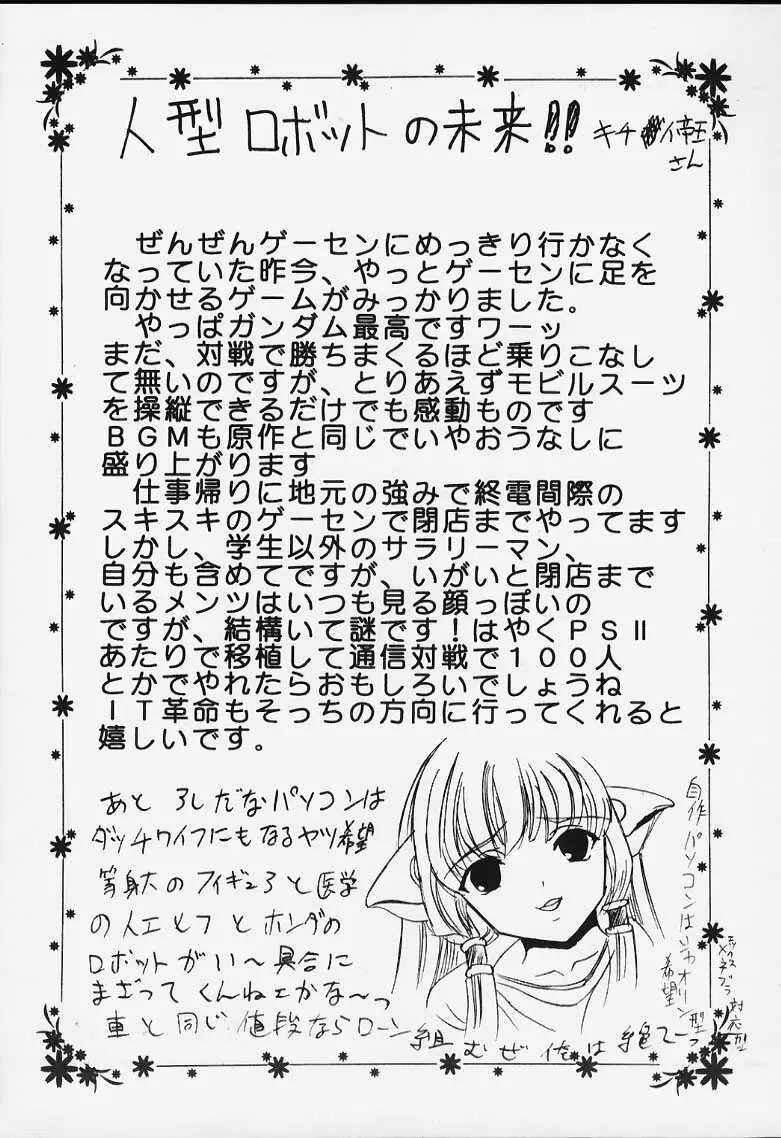 人型ロボットの未来!! キチ イ帝王
さん
ぜんぜんゲーセンにめっきり行かなく
なっていた昨今、やっとゲーセンに足を
向かせるゲームがみっかりました。
やっぱガンダム最高ですワーッ
まだ、対戦で勝ちまくるほど乗りこなし
て無いのですが、とりあえずモビルスーツ
を操縦できるだけでも感動ものです
ＢＧＭも原作と同じでいやおうなしに
盛り上がります
仕事帰りに地元の強みで終電間際の
スキスキのゲーセンで閉店までやってます
しかし、学生以外のサラリーマン、
自分も含めてですが、いがいと閉店まで
いるメンツはいつも見る顔っぽいの
ですが、結構いて謎です！はやくＰＳⅡ
あたりで移植して通信対戦で１００人
とかでやれたらおもしろいでしょうね
ＩＴ革命もそっちの方向に行ってくれると
嬉しいです。
あと 新しだなパソコンは
ダッチワイフにもなるヤツ希望
等身大のフィギュアと医学
の人工ヒフとホンダの
ロボットがい～具合に
まざってくんねェかな～っ
車と同じ値段ならローン組むぜ俺は絶てーっ
自作パソコンは
希望
対応型